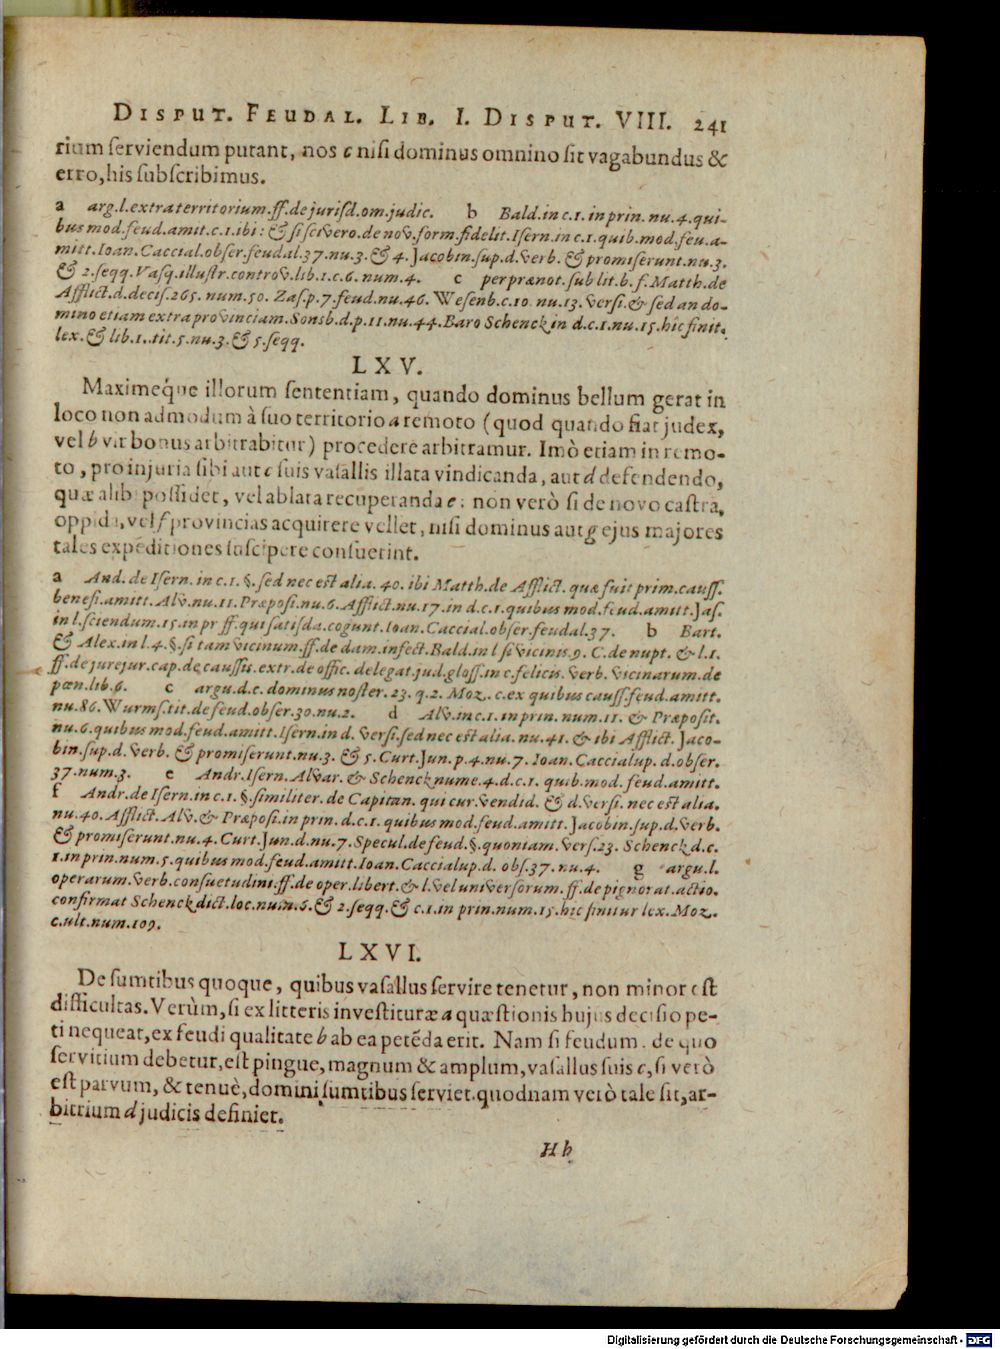 DISPUT. FEUDAL. LIB. I. DISPUT. VIII. 241
rium serviendum putant, nos c nisi dominus omnino sit vagabundus &
erro, his subscribimus.
a arg.l.extra territorium.ff.de jurisd.om.judic. b Bald.in c.1.in prin. nu.4.qui-
bus mod.feud.amit.c.1.ibi: & si scivero.de nov.form.fidelit.Isern.in c.1.quib.mod.feu.a-
mitt.Ioan.Caccial.obser.feudal.37.nu.3.& 4.Jacobin.sup.d.verb. & promiserunt.nu.3.
& 2.seqq.Vasq.illustr.controv.lib.1.c.6.num.4. c per prænot.sub lit.b.f.Matth.de
Afflict.d.decis.265.num.50. Zas.p.7.feud.nu.46. Wesenb.c.10.nu.13.versi.& sed an do-
mino etiam extra provinciam.Sonsb.d.p.11.nu.44.Baro Schenck in d.c.1.nu.15.hic finit.
lex.& lib.1.tit.5.nu.3.& 5.seqq.
LXV.
Maximéque illorum sententiam, quando dominus bellum gerat in
loco non admodum à suo territorio a remoto (quod quando fiat judex,
vel b vir bonus arbitrabitur) procedere arbitramur. Imò etiam in remo-
to, pro injuria sibi aut c suis vasallis illata vindicanda, aut d defendendo,
quæ alibi possidet, vel ablata recuperanda e: non verò si de novo castra,
oppida, vel f provincias acquirere vellet, nisi dominus aut g ejus majores
tales expeditiones suscipere consuerint.
a And. de Isern. in c.1. §. sed nec est alia. 40. ibi Matth. de Afflict. quæ fuit prim. causs.
benefi.amitt.Alv.nu.11.Præposi.nu.6.Afflict.nu.17.in d.c.1.quibus mod.feud.amitt.Jas.
in l.sciendum.15.in pr ff.qui satisda.cogunt.Ioan.Caccial.obser.feudal.37. b Bart.
& Alex.in l.4.§.si tam vicinum.ff.de dam.infect.Bald.in l si vicinis.9. C.de nupt. & l.1.
ff.de jurejur.cap.de caussis.extr.de offic. delegat.jud.gloss.in c.felicis. verb. vicinarum.de
pœn.lib.6. c argu.d.c. dominus noster. 23. q.2. Moz. c.ex quibus causs.feud.amitt.
nu.86.Wurms.tit.de feud.obser.30.nu.2. d Alv.in c.1.in prin. num.11. & Præposit.
nu.6.quibus mod.feud.amitt.Isern.in d. versi.sed nec est alia. nu.41.& ibi Afflict. Jaco-
bin.sup.d. verb. & promiserunt.nu.3. & 5.Curt.Jun.p.4.nu.7. Ioan.Caccialup.d.obser.
37.num.3. e Andr.Isern.Alvar.& Schenck nume.4.d.c.1. quib.mod.feud.amitt.
f Andr.de Isern.in c.1.§.similiter.de Capitan. qui cur.vendid. & d.versi. nec est alia.
nu.40.Afflict.Alv.& Præposi.in prin.d.c.1.quibus mod.feud.amitt.Jacobin.sup.d.verb.
& promiserunt.nu.4.Curt.Jun.d.nu.7.Specul.de feud.§.quoniam.vers.23. Schenck d.c.
1.in prin.num.5.quibus mod.feud.amitt.Ioan.Caccialup.d. obs.37.nu.4. g argu.l.
operarum.verb.consuetudini.ff.de oper.libert.& l.vel universorum.ff.de pignorat.actio.
confirmat Schenck dict.loc.num.6.& 2.seqq.& c.1.in prin.num.15.hic finitur lex.Moz.
c.ult.num.109.
LXVI.
De sumtibus quoque, quibus vasallus servire tenetur, non minor est
difficultas. Verùm, si ex litteris investituræ a quæstionis hujus decisio pe-
ti nequeat, ex feudi qualitate b ab ea petẽda erit. Nam si feudum, de quo
servitium debetur, est pingue, magnum & amplum, vasallus suis c, si verò
est parvum, & tenuè, domini sumtibus serviet. quodnam verò tale sit, ar-
bitrium d judicis definiet.
Hh
Digitalisierung gefördert durch die Deutsche Forschungsgemeinschaft - DFG